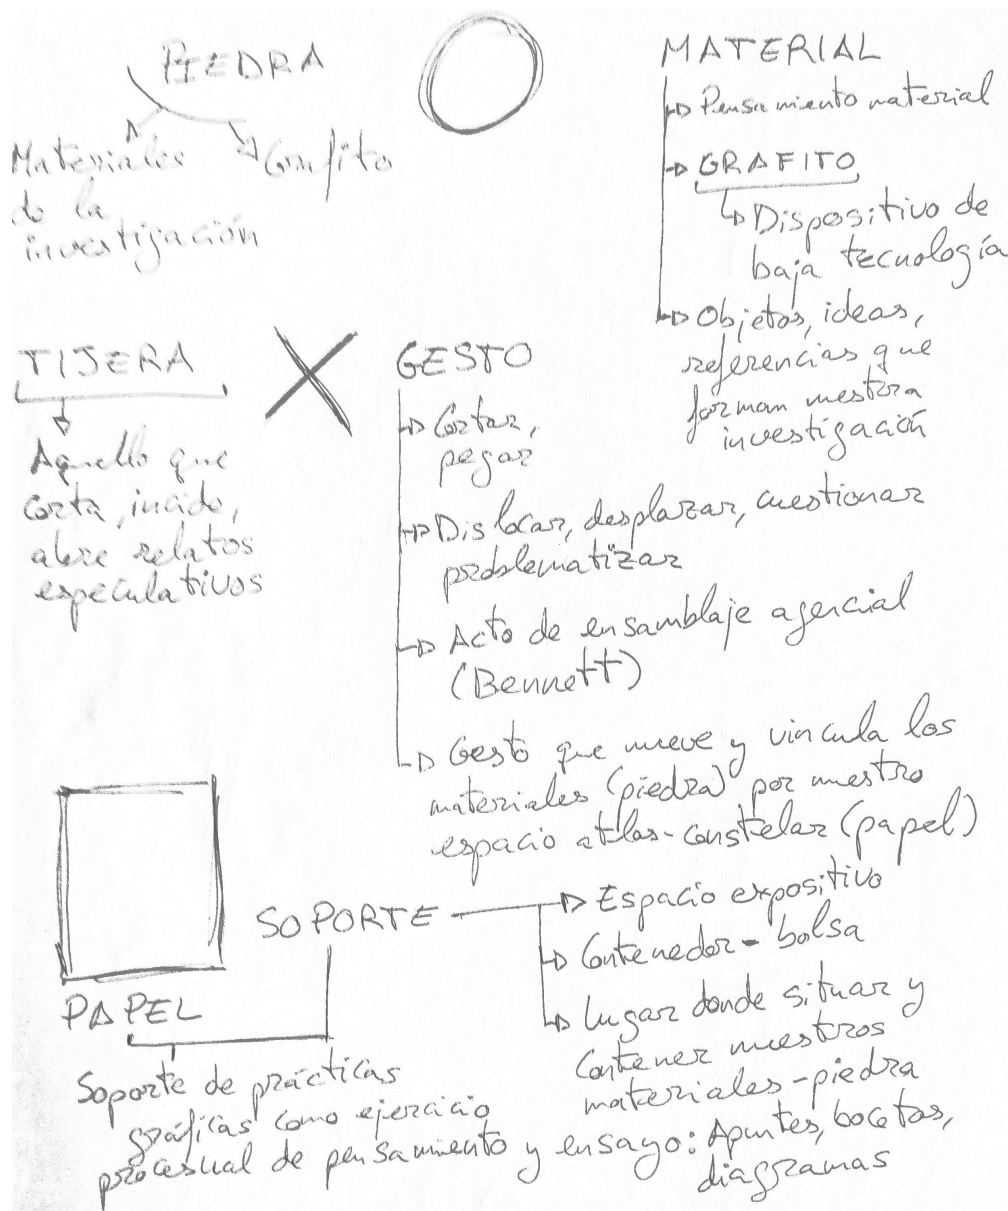 PIEDRA
Materiales
de la
investigación
Grafito
MATERIAL
Pensamiento material
GRAFITO
Dispositivo de
baja tecnología
Objetos, ideas,
referencias que
forman nuestra
investigación
TIJERA
Aquello que
corta, incide,
abre relatos
especulativos
GESTO
Cortar,
pegar
Dislocar, desplazar, cuestionar
problematizar
Acto de ensamblaje agencial
(Bennett)
Gesto que mueve y vincula los
materiales (piedra) por nuestro
espacio atlas-constelar (papel)
PAPEL
SOPORTE
Espacio expositivo
Contenedor - bolsa
Lugar donde situar y
contener nuestros
materiales-piedra
Soporte de prácticas
gráficas como ejercicio
procesual de pensamiento y ensayo: Apuntes, bocetos,
diagramas